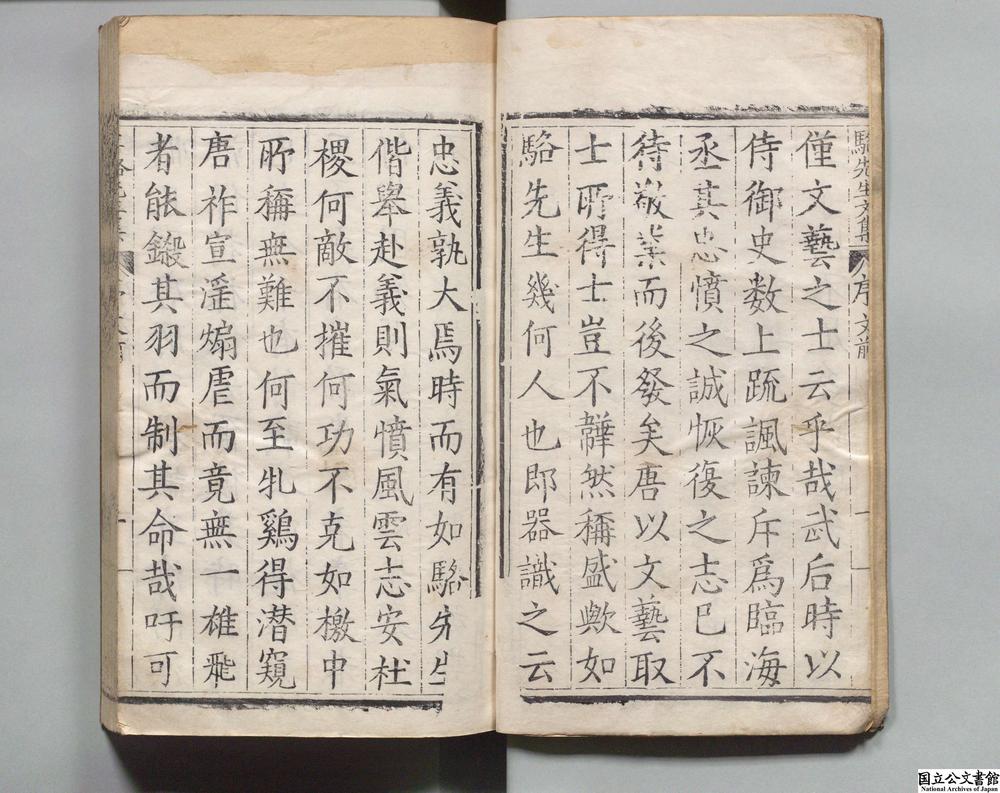 駱先生文集 序 文前
僅文藝之士云乎哉武后時以
侍御史数上䟽諷諫斥爲臨海
丞其忠憤之誠恢復之志已不
待敬業而後發矣唐以文藝取
士所得士豈不韡然稱盛歟如
駱先生幾何人也即器識之云
忠義孰大焉時而有如駱先生
偕舉赴義則氣憤風雲志安社
稷何敵不摧何功不克如檄中
所稱無難也何至牝鷄得潜窺
唐祚宣滛煽虐而竟無一雄飛
者能鎩其羽而制其命哉吁可
国立公文書館
National Archives of Japan